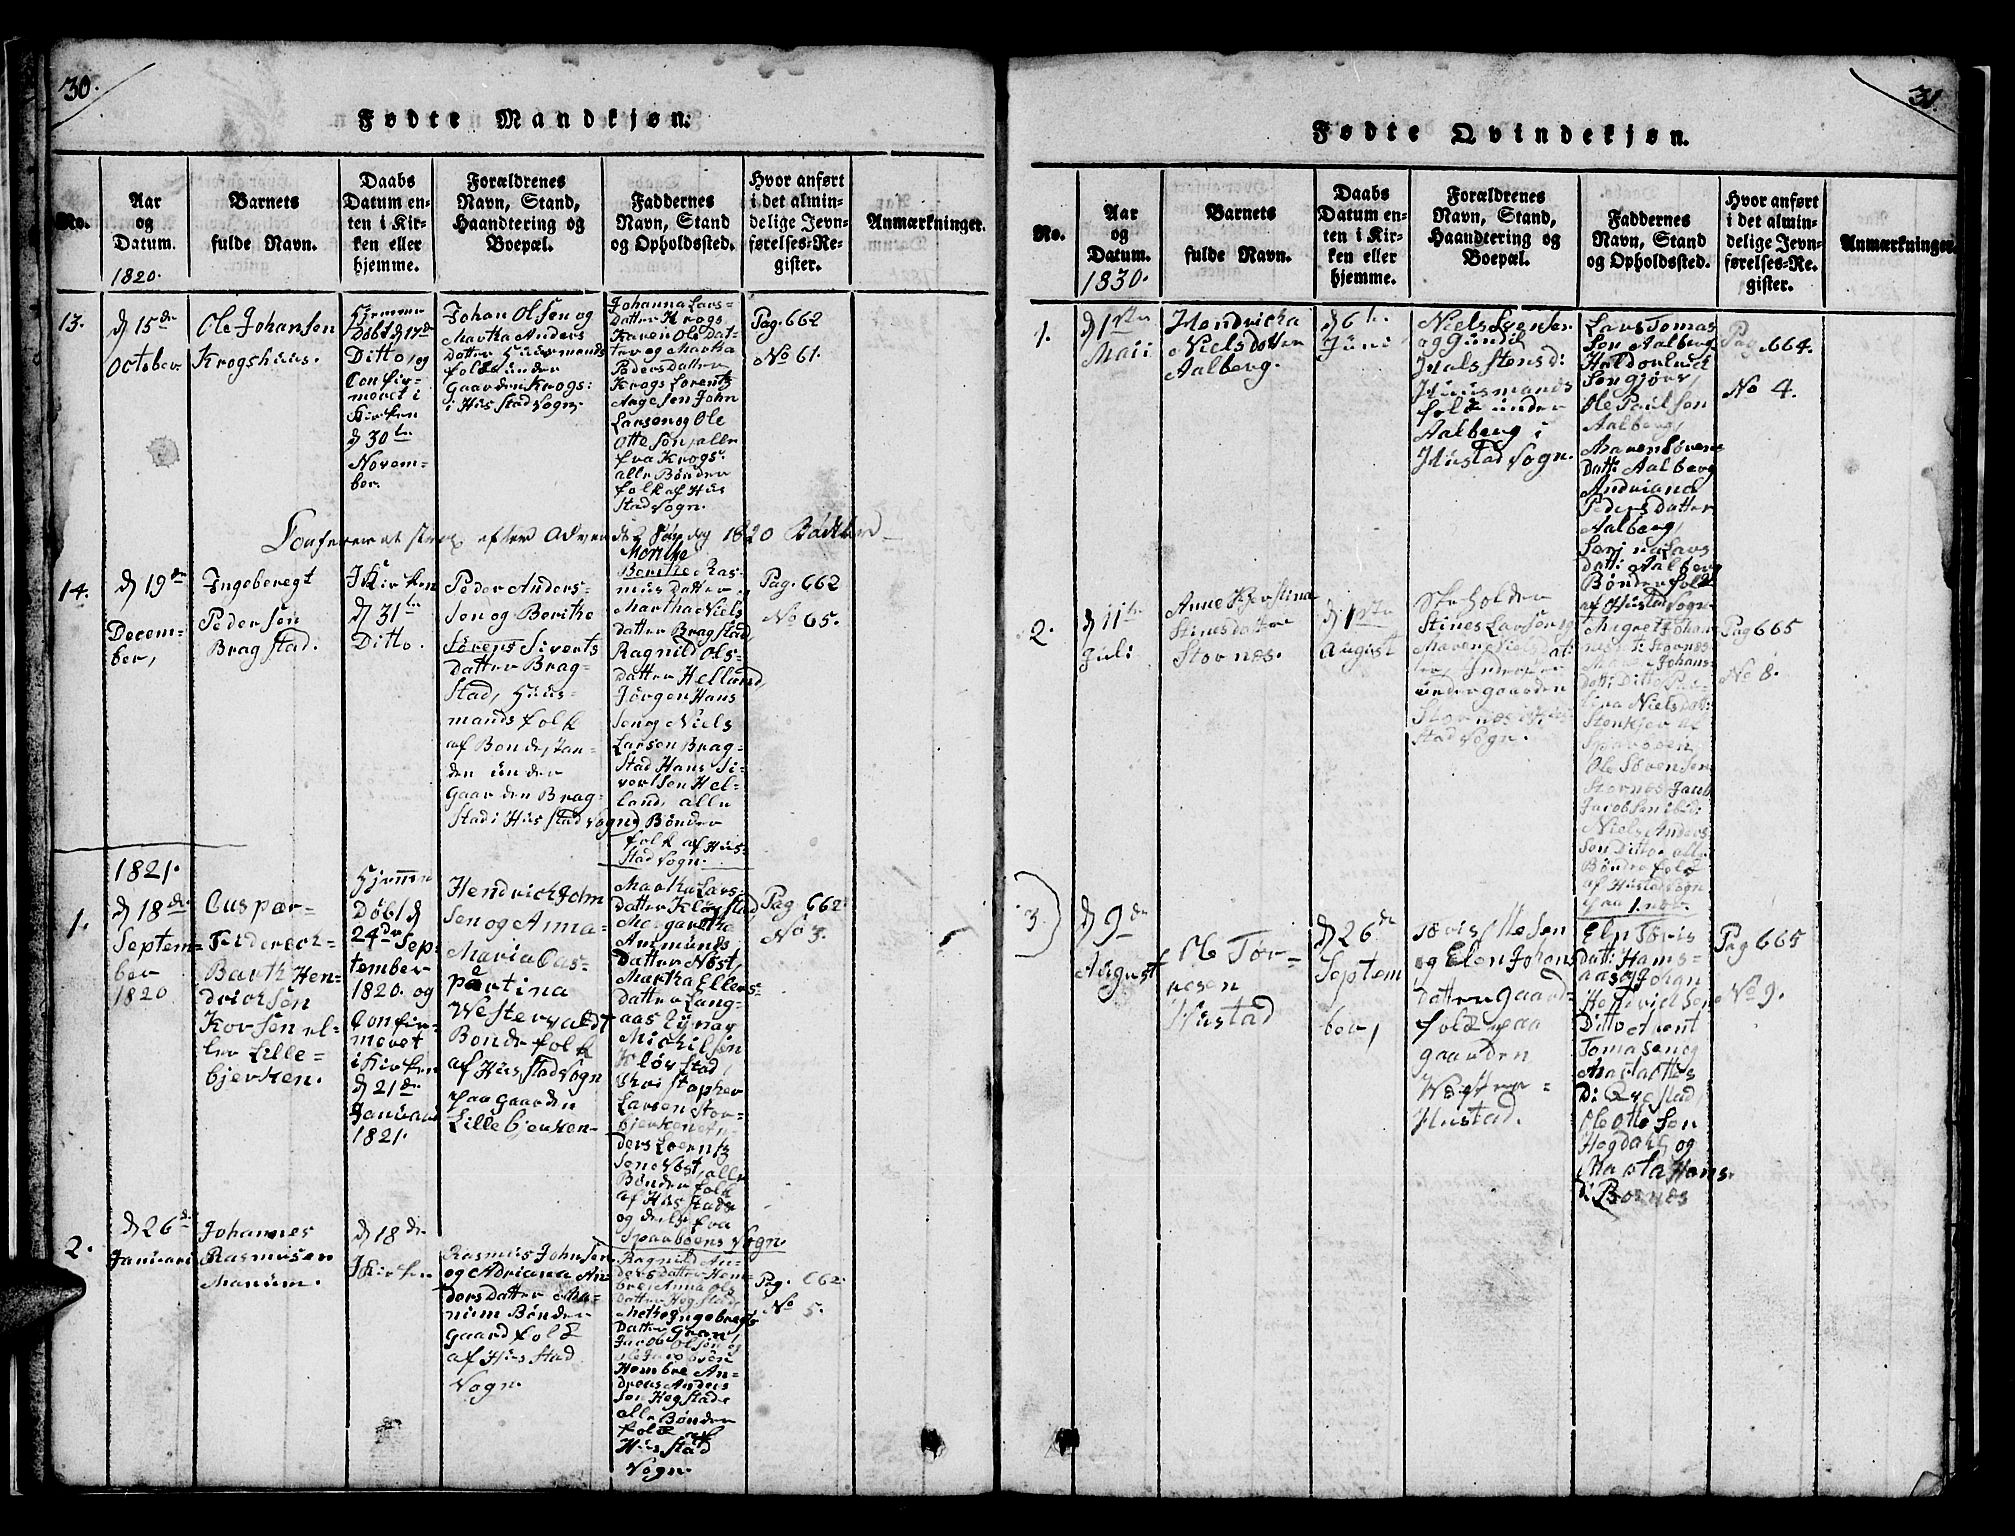 30.
Fødte Mandkjøn.
No.
Aar
og
Datum.
1820.
Barnets
fulde Navn.
Daabs
Datum en-
ten i Kir-
ken eller
hjemme.
Forældrenes
Navn, Stand,
Haandtering og
Boepæl.
Faddernes
Navn, Stand
og Opholdssted.
Hvor anført
i det almin-
delige Jevn-
førelses-Re-
gister.
Anmærkninger.
13.
d 15de
October
Ole Johansen
Krogshuus.
Hjemme
Døbt d 17de
Ditto, og
Confir-
meret i
Kirken
d 30te
Novem-
ber.
Johan Olsen og
Martha Anders
Datter Huusmands
folk under
Gaarden Krogs:
i Hüsstad Sogn,
Johanna Lars-
Datter Krogs
Karen Ole Dat-
ter og Martha
Peders Datter
Krogs Lorentz
Aagesen John
Larsen og Ole
Ottesøn, alle
fra Krogs.
alle Bønder
folk af Hüs
stad Sogn.
Pag. 662
No 61.
1820
14.
d 19de
Decem-
ber,
Ingeberegt
Pedersen
Bragstad.
I Kirken
d 31te
Ditto.
Peder Anders-
sen og Berithe
Sørens Siverts
Datter Brag-
stad, Huus-
mandsfolk
af Bondestan-
den under
Gaarden Brag-
stad i Hüsstad Sogn
Merithe
Berithe Ras-
mus Datter
Martha Niels
Datter Bragstad,
Ragnild Ols-
Datter Helland,
Jørgen Hans
Sen og Niels
Larsen Brag-
stad Hans Si-
vertsen Hel-
land, alle
Bønder
folk af Hüs-
stad Sogn.
Pag. 662
No 65.
1821.
1.
d 18de
Septem-
ber
1820
Caspær-
Barth Hen-
drichsen
Korsen el-
ler Lille-
bjerken.
Hjemme
Døbt d
24de Sep-
tember
1820. og
Confir-
meret
i Kirken
d 21de
Januari
1821.
Hendrich John
Sen og Anna-
Maria Cas-
pertina
Westervaldt
Bondefolk
af Hüsstad Sogn
paa Gaarden
Lillebjerken-
Martha Lars-
Datter Kløvstad
Margaretha
Ammunds
Datter Nøst,
Martha Ellers-
Datter Lang-
aas Ejnar
Michilsen
Kløvstad,
Christopher
Larsen Stor-
bjerken
ders Lorentz
Sen Nøst, alle
Bønderfolk
af Hüsstads
og deels fra
Sparboens Sogn.
Pag 662
No 3.
2.
d 26de
Januari
Johannes
Rasmusen
Manum.
d 18de
I Kirken
Rasmus Johnsen
og Adriana An-
dersDatter Ma-
num Bønder
Gaardfolk
af Hüsstad
Sogn
Ragnild An-
dersDatter Hem-
bre, Anna Ols
Datter Hegstad,
Methe Ingebregts
Datter Gran,
Jacob Olsen og
Ole Jacobsen
Hembre An-
dreas Anders
Sen Hegstade
alle Bønder
folk af
Hüsstad
Sogn
Pag. 662
No 5.
31.
Fødte Qvindekjøn.
No.
Aar
og
Datum.
1830.
Barnets
fulde Navn.
Daabs
Datum en-
ten i Kir-
ken eller
hjemme.
Forældrenes
Navn, Stand,
Haandtering og
Boepæl.
Faddernes
Navn, Stand
og Opholdssted.
Hvor anført
i det almin-
delige Jevn-
førelses-Re-
gister.
Anmærkninger.
1.
d 1ste
Maii
Hendricka
Nielsdatter
Aalberg.
d 6te
Juni
Niels Svensen
og Gunild
Halstensd:
Huusmands
folk under
Aalberg i
Hüstad Sogn.
Lars Tomas
Sen Aalberg
Ole Paulsen
Aalberg,
Maren Sørens
Datt: Aalberg
Andriana
Peders Datter
Aalberg,
Lars
Datt: Aalberg
Bønderfolk
af Hüstad Sogn
Pag. 664.
No 4.
2.
d 11te
Juli
Anne Kjerstina
Stinesdatter
Stornes.
d 1ste
August
Stines Larsen og
Maren Niels Dat-
ter,
under Gaarden
Stornes i Hüs-
stad Sogn.
Migret Johan
nesd: Stornes
Johans-
Datt: Ditto
Niels Dat:
Stenkjer af
Sparboen,
Ole Sørensen
Stornes Jacob
Jacobsen ibid:
Niels Anders
Sen Ditto. alle
Bønderfolk
af Hüstad Sogn
Pag 665
No 8.
3.
d 9de
August
Ole Tør-
resen
Hustad
d 26de
Septem
ber,
og Elen Johans
Datter Gaard-
folk paa
Gaarden
Westre-
Hustad.
Datt: Hams-
aas og Johan
Hendrichsen
Ditto
Tomasen og
D: Qvestad,
Ole Ottesen
Hegdahl og
Marta Hans-
D: Bornes
Pag 665
No 9.